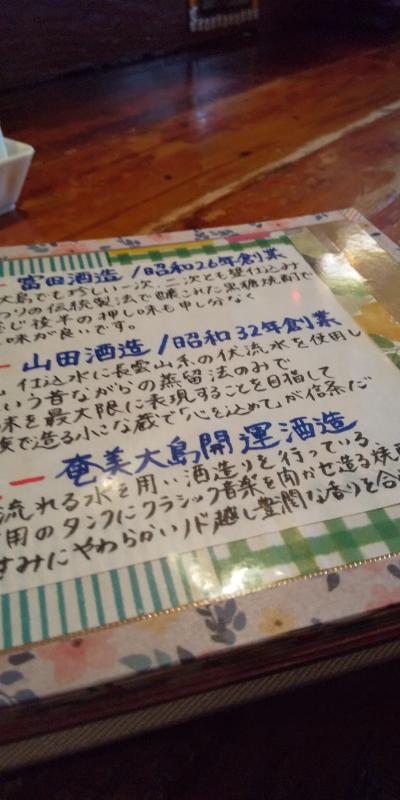 富田酒造/昭和26年創業
大島でも珍しい一次、二次とも甕仕込み
つりの伝統製法で醸された黒糖焼酎で
じ後半の押し味も申し分なく
味が良いです。
山田酒造/昭和32年創業
仕込水に長雲山系の伏流水を使用し
いう昔ながらの蒸留法のみで
味を最大限に表現することを目指して
族で造る小さな蔵で「心を込めて」が信条だ
奄美大島開運酒造
流れる水を用い酒造りを行っている。
用のタンクにクラシック音楽を向かせ造る焼
すみにやわらかいノド越し豊潤な香りを合